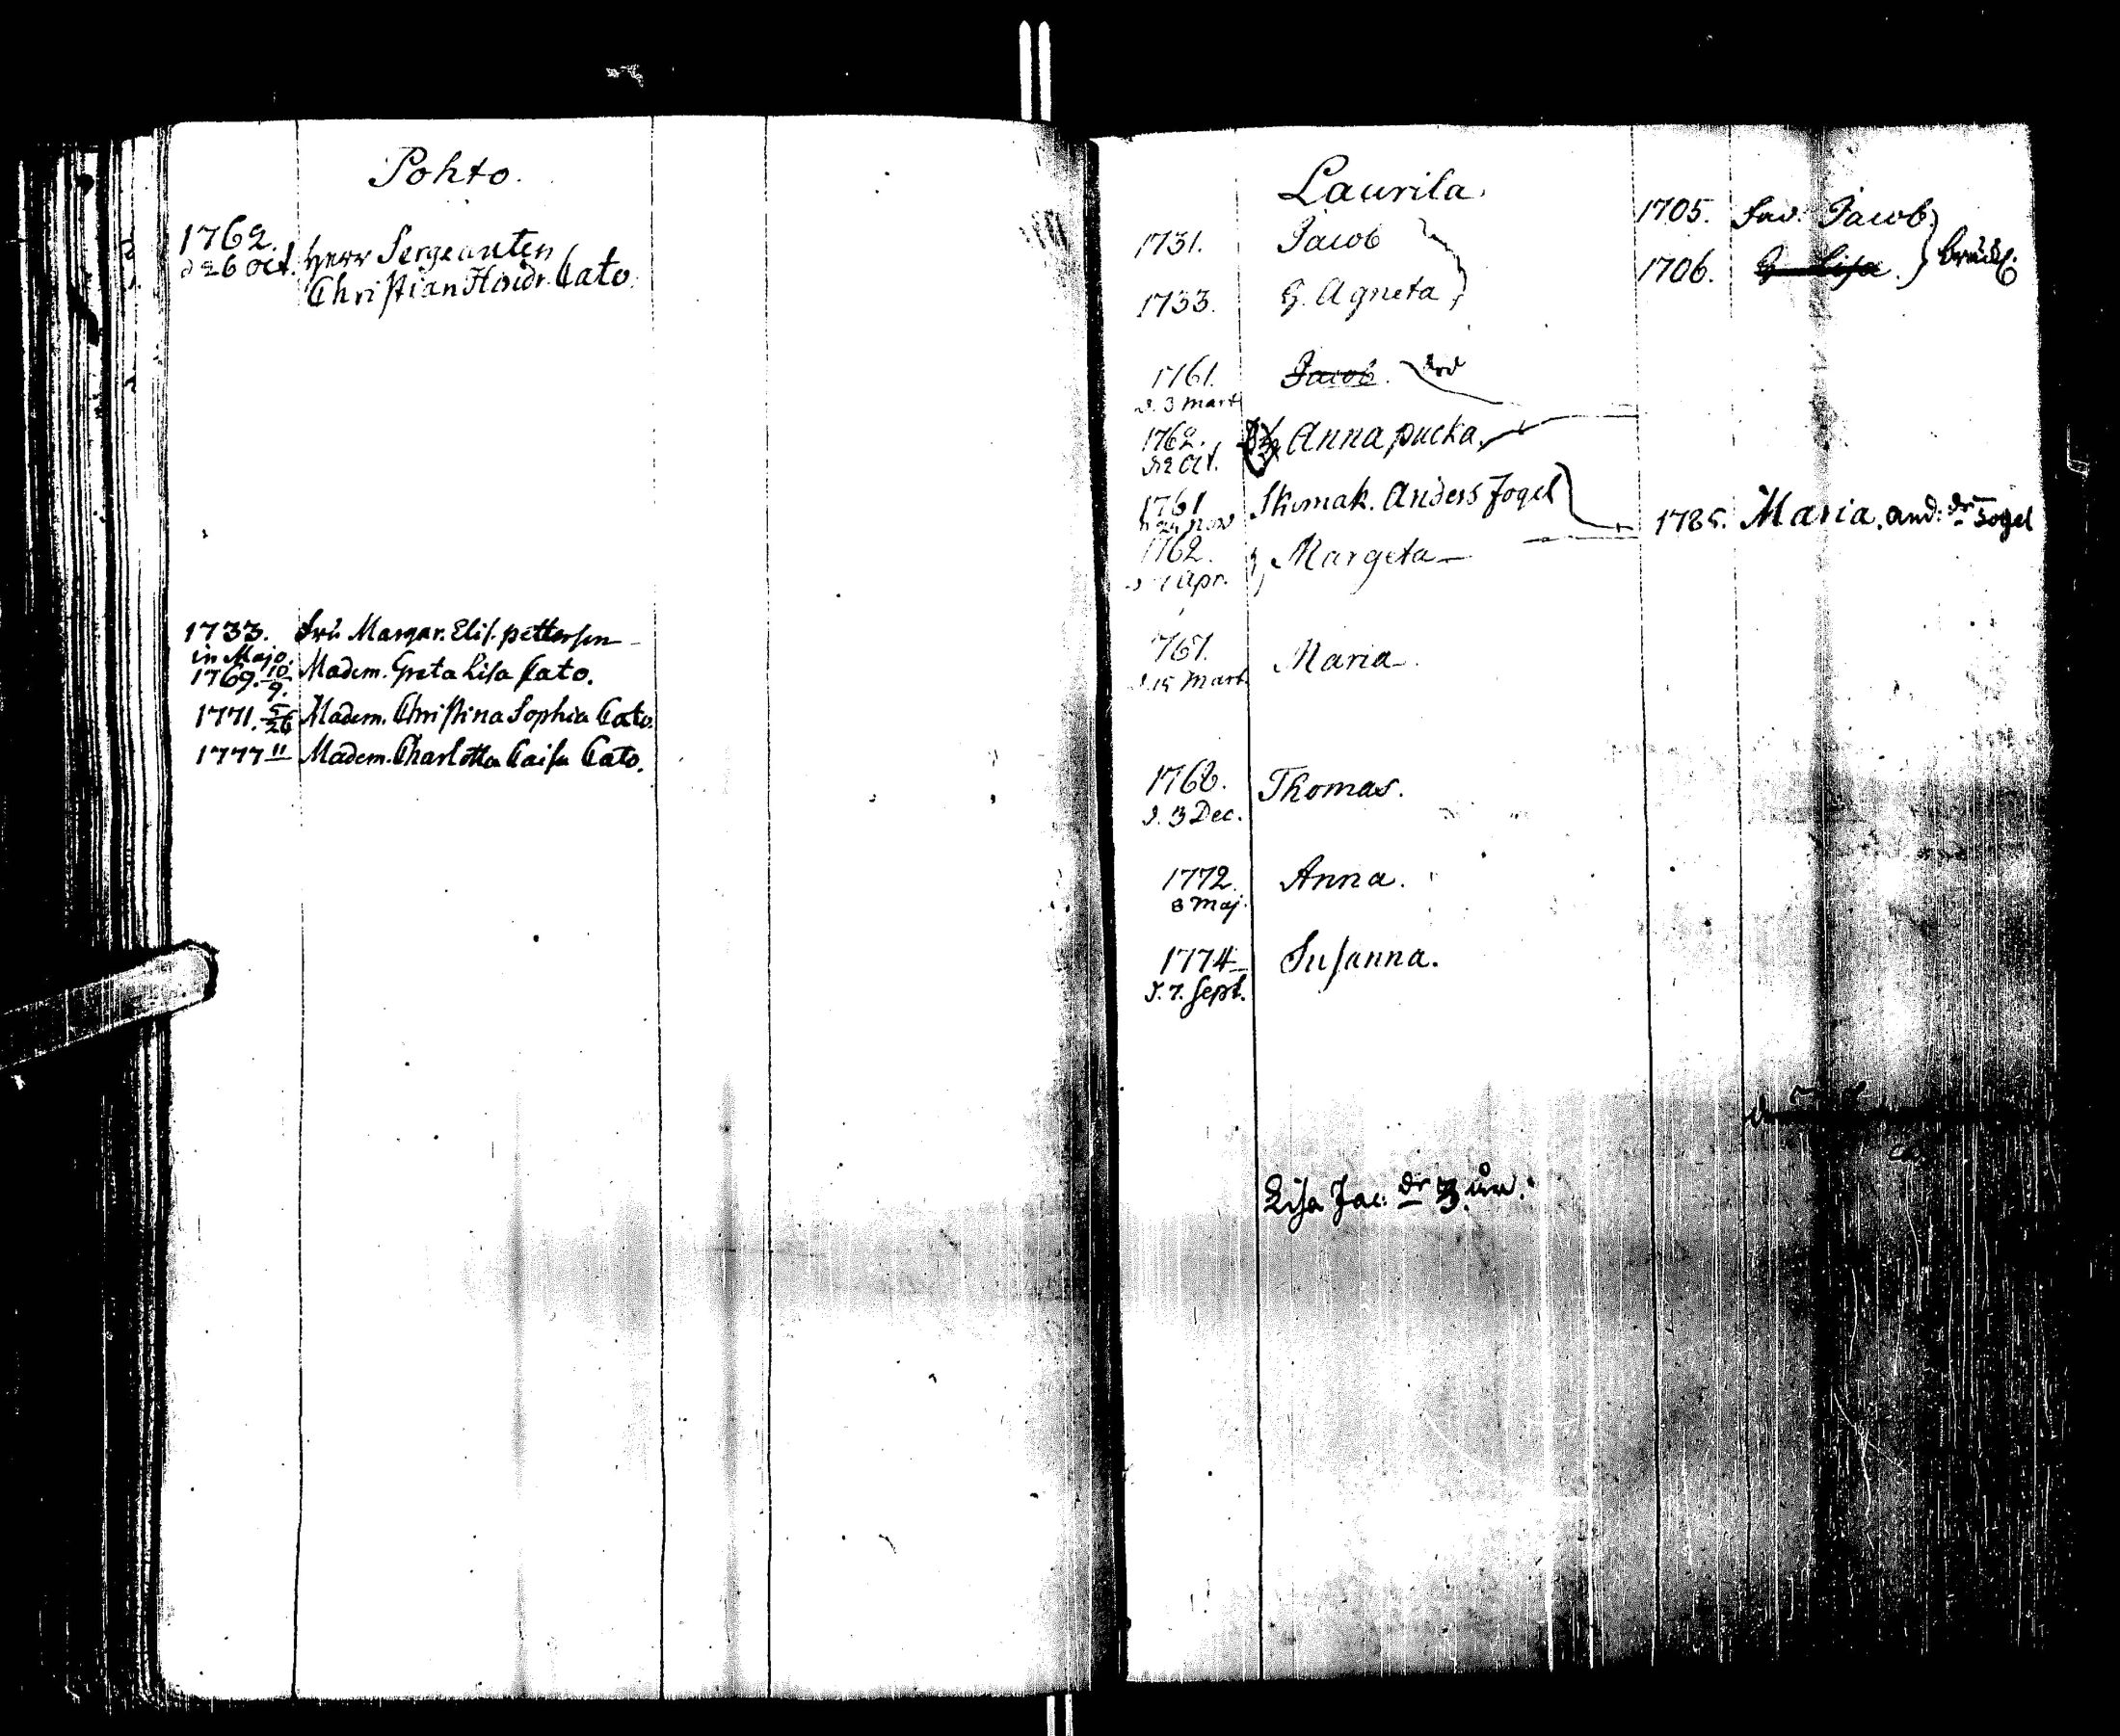 Pohto.
1762.
d 26 Oct. Herr Sergeanten
Christian Cato.
1733. Fru Margar. Elis. pettersen
in Majo.
1769. 10/9. Madem. Greta Lisa Cato.
1771. 5/26 Madem. Christina Sophia Cato.
1777 11 Madem. Charlotta Caisa Cato.
Laurila.
1731. Jacob
1733. H. Agneta
1761. Jacob.
d. 3 Mart
1762. Anna pucka
Oct.
1761 Skomak. Anders Fogel
nov
1762. H. Margeta
Apr.
1767. Maria.
d. 15 Mart.
1768. Thomas.
d. 3 Dec.
1772. Anna.
8 Maj.
1774 Susanna.
d. 7. Sept.
Lisa Jac. dr 3 år.
1705. Fad. Jacob
1706. H. Lisa.
1785. Maria. And: dr Fogel